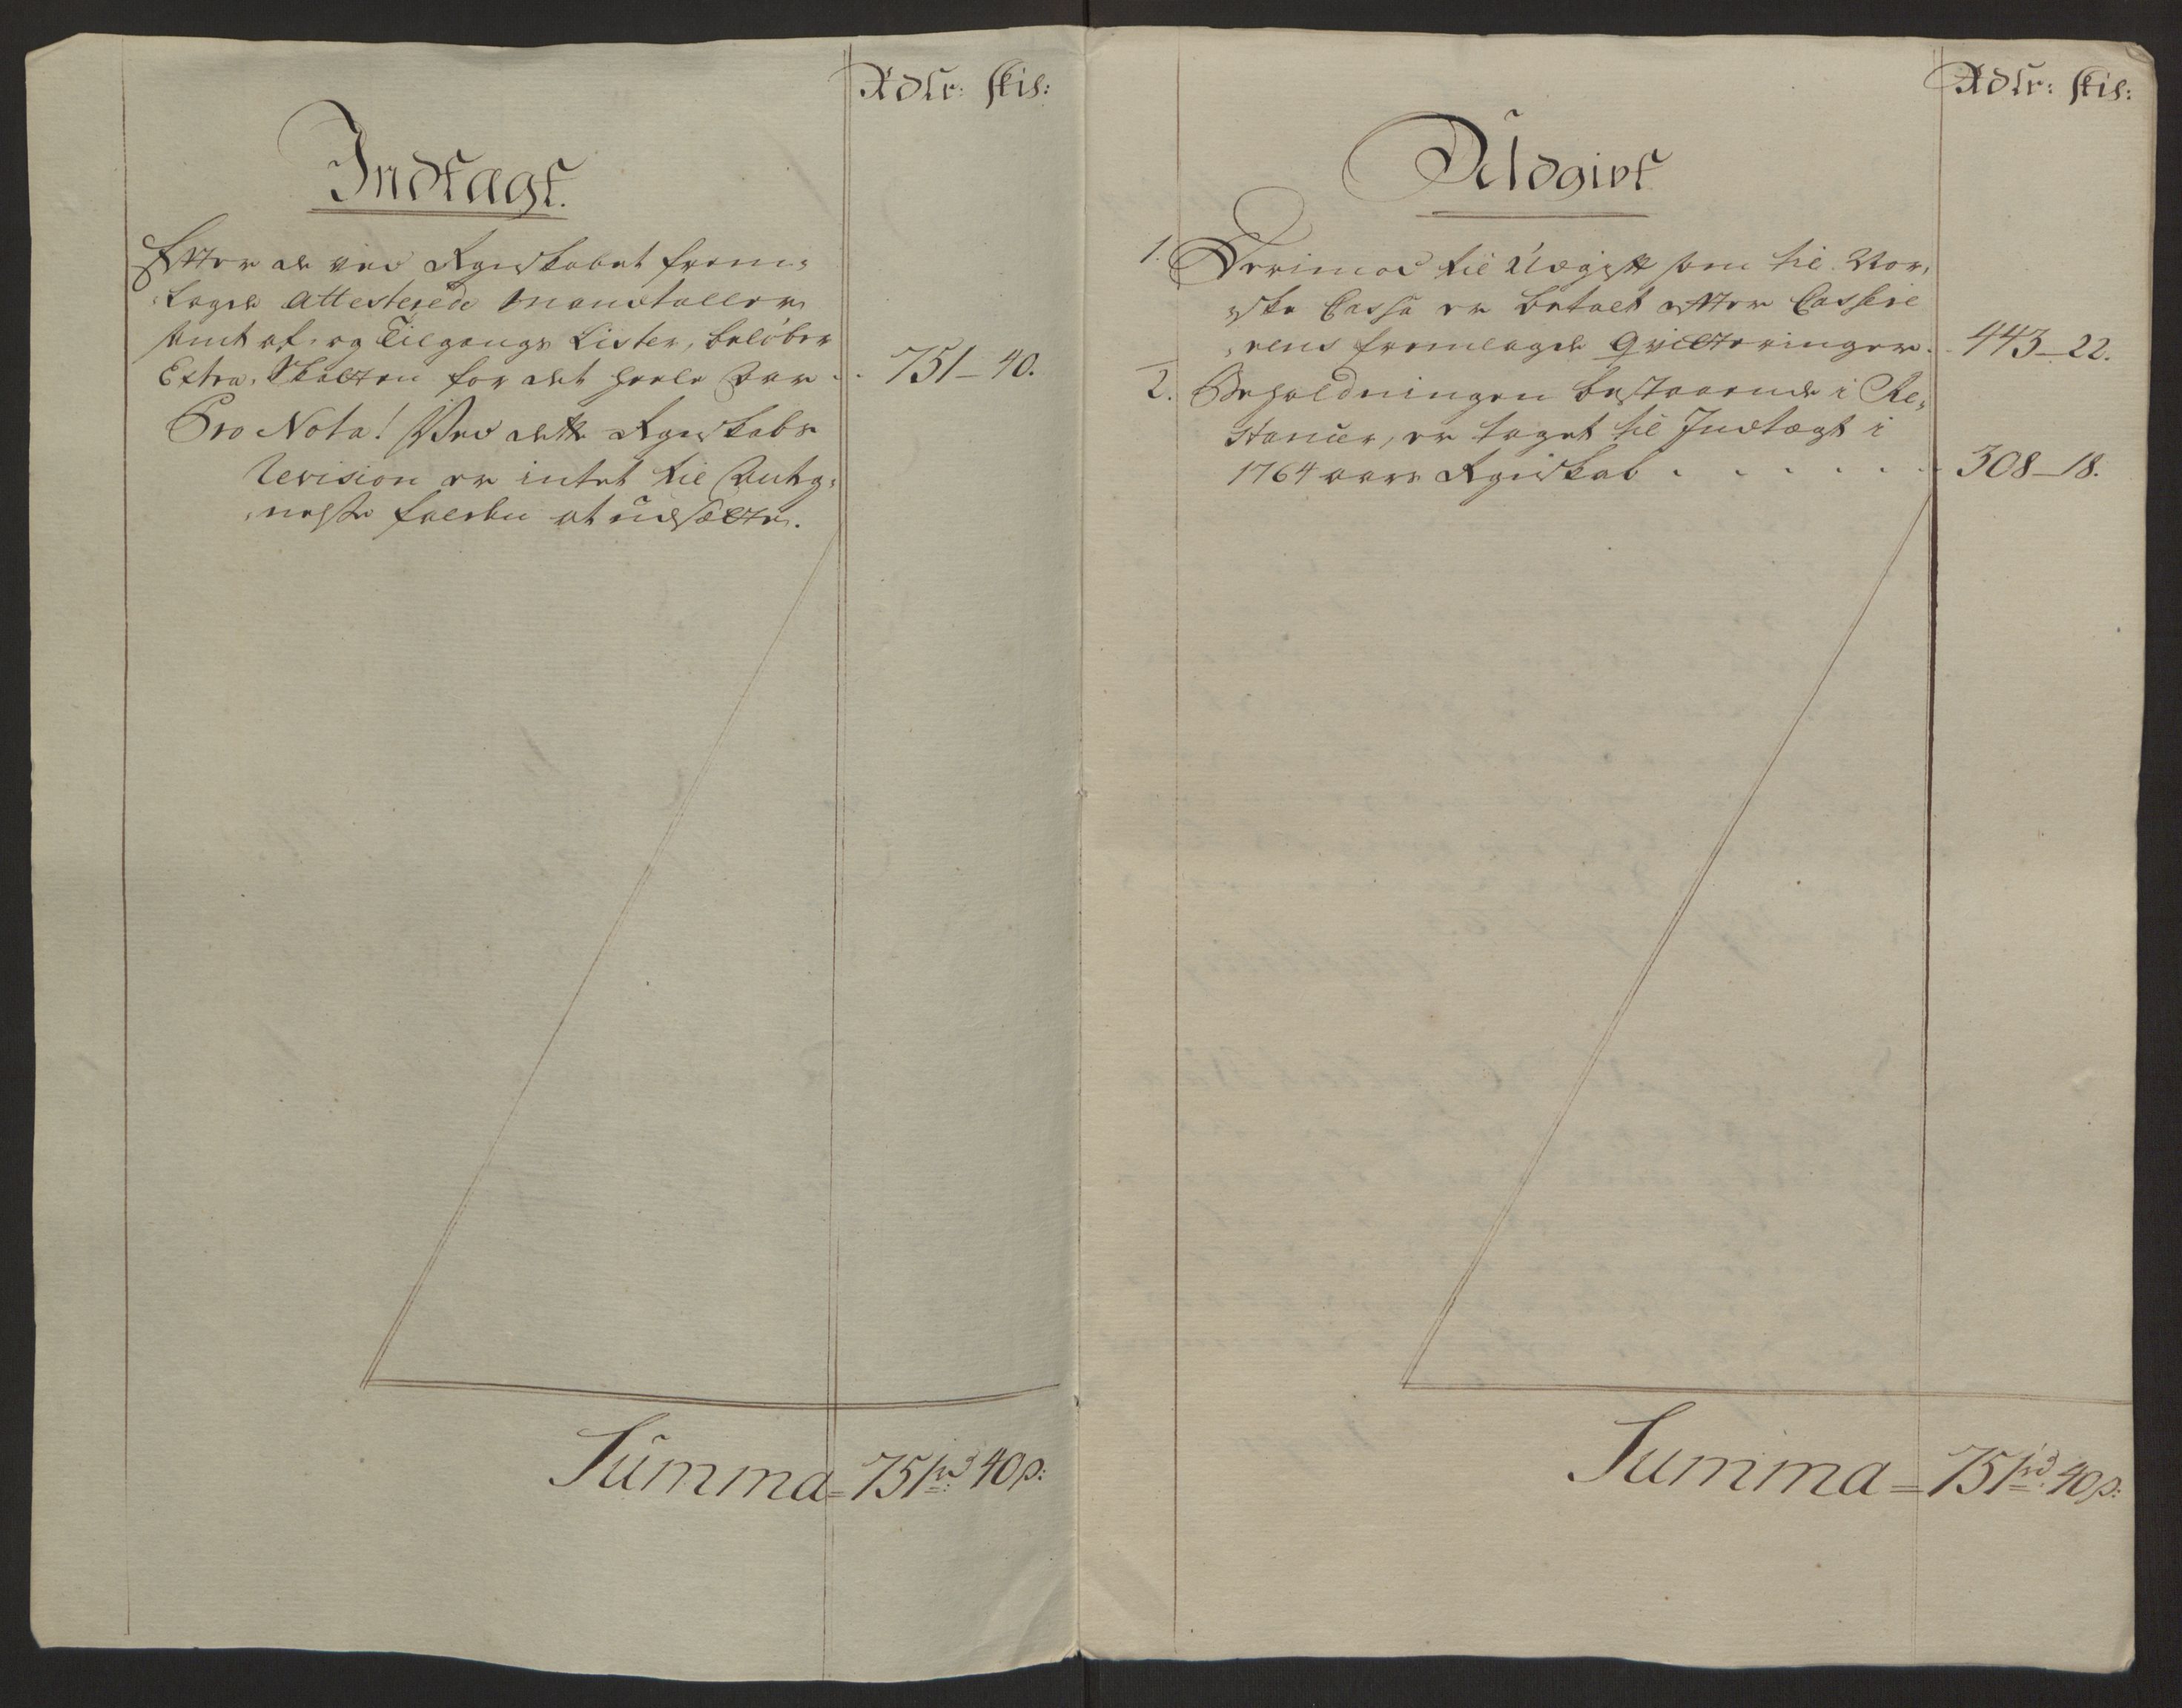 Rdlr: skil:
Indtægt.
Efter de ved Regnskabet frem-
lagde Attesterede Mandtaller
samt af- og Tilgangs Lister, beløber
Extra-Skatten for det heele Aar . . 751 - 40.
Pro Nota! Ved dette Regnskabs
Revision er intet til Anteg-
nelse falden at udsætte.
Summa = 751 rd 40 s:
Rdlr: skil:
Udgivt
1. Derimod til Udgift som til Nor-
ske Cassa er betalt efter Casseie
rens fremlagde Qvitteringer . 443 - 22.
2. Beholdningen bestaaende i Re-
stancer, er taget til Indtægt i
1764 aars Regnskab . . . . . . 308 - 18.
Summa = 751 rd 40 s: